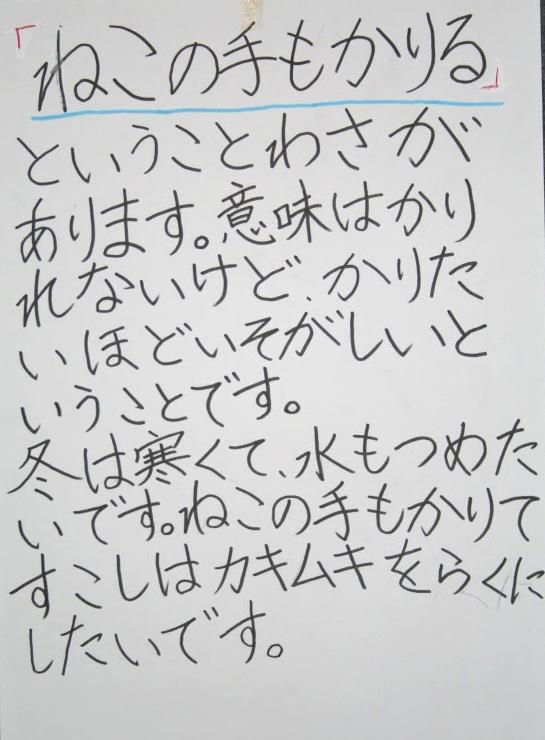 「ねこの手もかりる」
ということわざが
あります。意味はかり
れないけど、かりた
いほどいそがしいと
いうことです。
冬は寒くて、水もつめた
いです。ねこの手もかりて
すこしはカキムキをらくに
したいです。